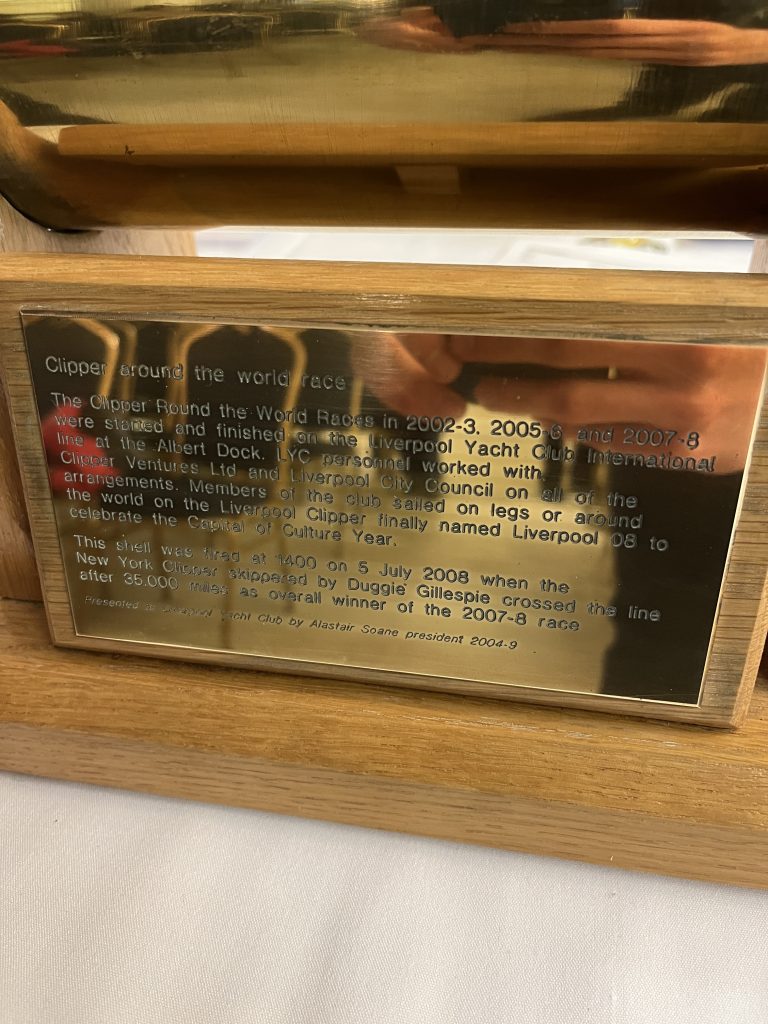 Clipper around the world race
The Clipper Round the World Races in 2002-3. 2005-6 and 2007-8
were started and finished on the Liverpool Yacht Club International
line at the Albert Dock. LYC personnel worked with
Clipper Ventures Ltd and Liverpool City Council on all of the
arrangements. Members of the club sailed on legs or around
the world on the Liverpool Clipper finally named Liverpool 08 to
celebrate the Capital of Culture Year.
This shell was fired at 1400 on 5 July 2008 when the
New York Clipper skippered by Duggie Gillespie crossed the line
after 35,000 miles as overall winner of the 2007-8 race
Presented to Liverpool Yacht Club by Alastair Soane president 2004-9